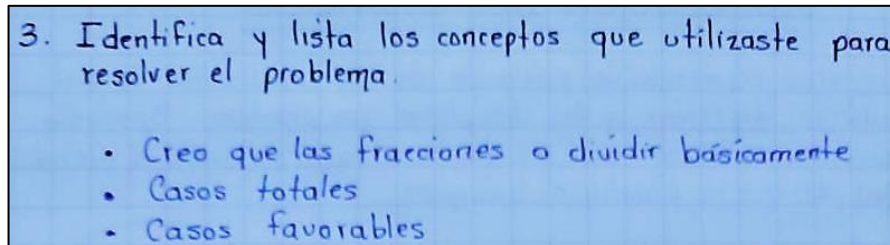 3. Identifica y lista los conceptos que utilizaste para
resolver el problema.
• Creo que las fracciones o dividir básicamente
• Casos totales
• Casos favorables